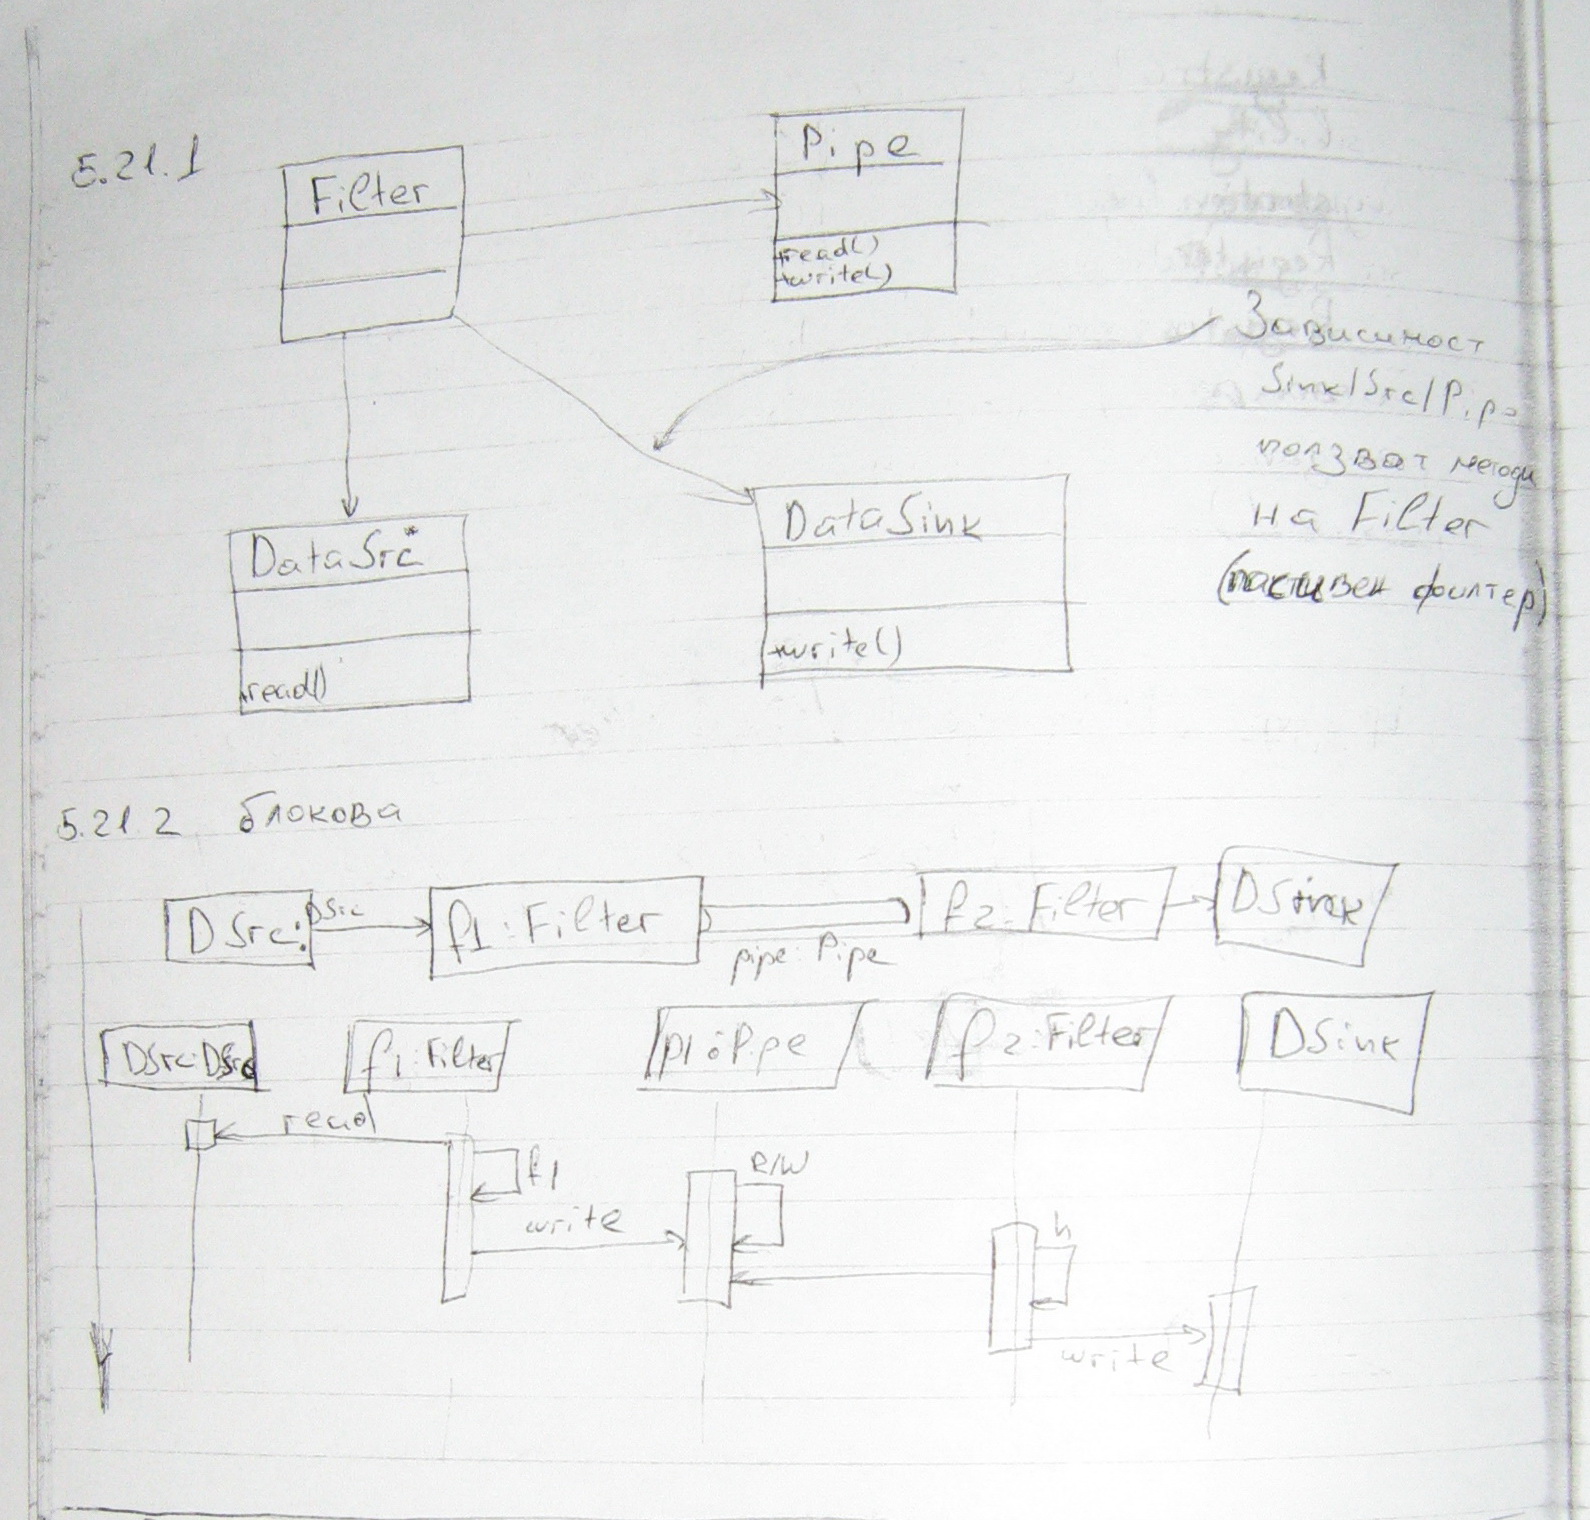 5.21.1
Filter
Pipe
+read()
+write()
Зависимост
Sink/Src/Pipe
ползват методи
на Filter
филтер)
DataSrc
+read()
DataSink
+write()
5.21.2 блокова
DSrc:
DSrc
f1:Filter
pipe:Pipe
f2:Filter
DSink
DSrc:DSrc
f1:Filter
p1:Pipe
f2:Filter
DSink
read
f1
R/W
write
h
write